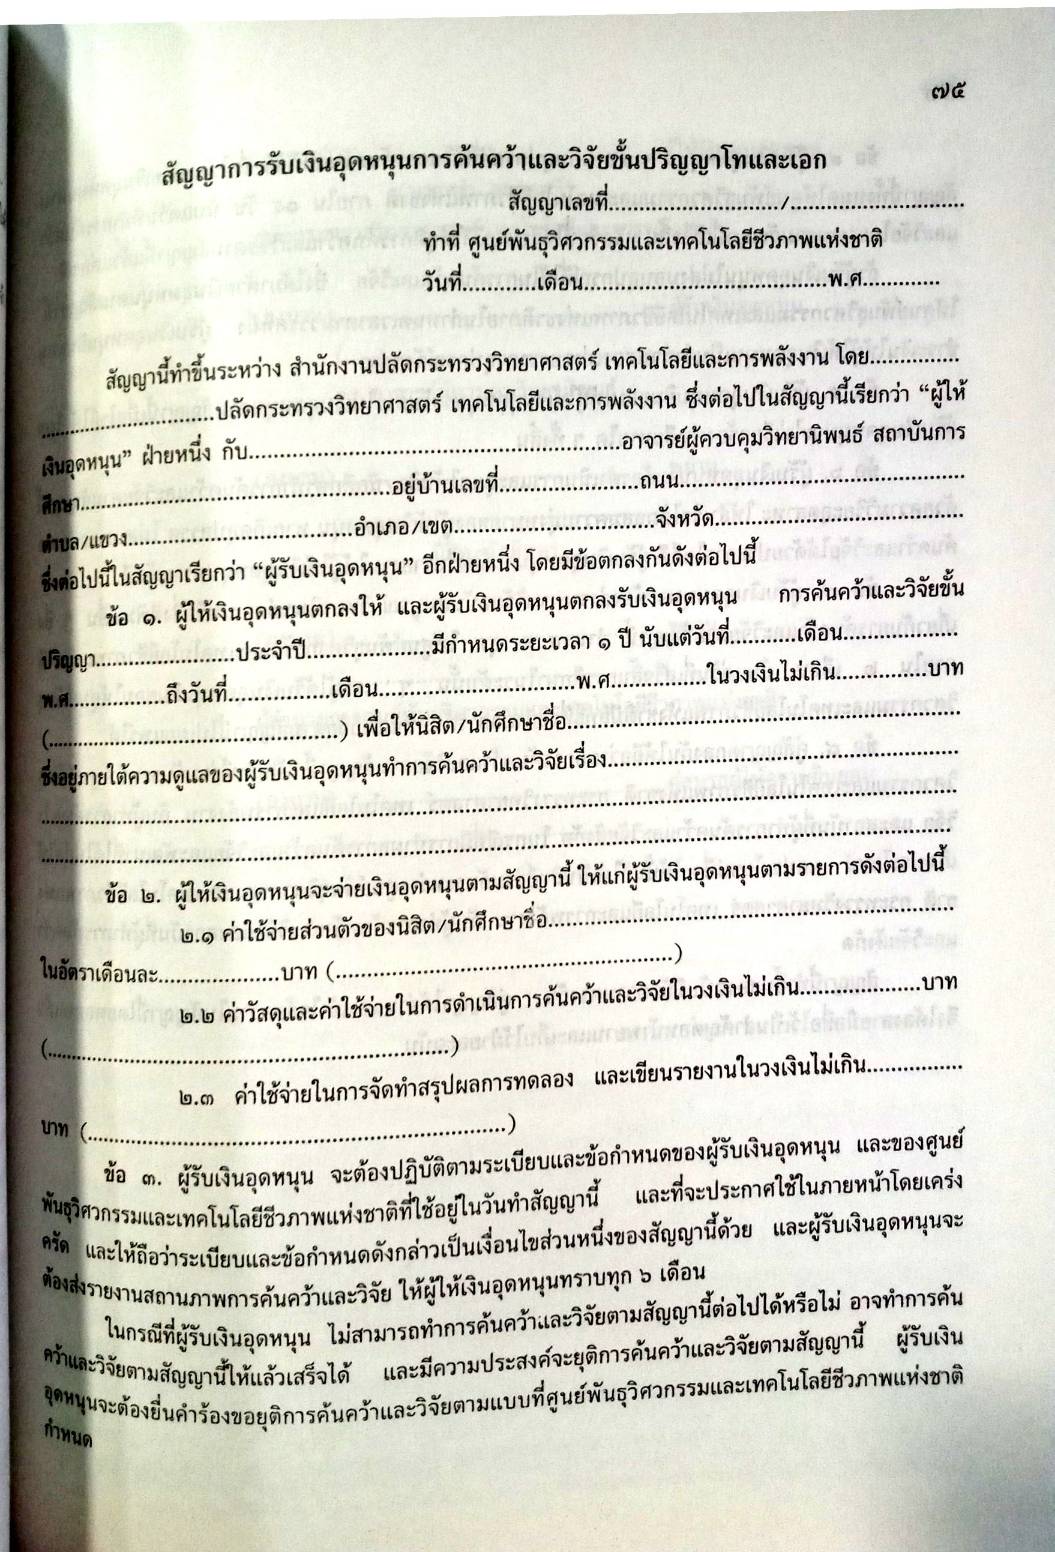 ๗๕
สัญญาการรับเงินอุดหนุนการค้นคว้าและวิจัยชั้นปริญญาโทและเอก
สัญญาเลขที่............................/............................
ทำที่ ศูนย์พันธุวิศวกรรมและเทคโนโลยีชีวภาพแห่งชาติ
วันที่............เดือน........................................พ.ศ.............
สัญญานี้ทำขึ้นระหว่าง สำนักงานปลัดกระทรวงวิทยาศาสตร์ เทคโนโลยีและการพลังงาน โดย...............
..............................ปลัดกระทรวงวิทยาศาสตร์ เทคโนโลยีและการพลังงาน ซึ่งต่อไปในสัญญานี้เรียกว่า “ผู้ให้
เงินอุดหนุน” ฝ่ายหนึ่ง กับ..............................................................อาจารย์ผู้ควบคุมวิทยานิพนธ์ สถาบันการ
ศึกษา....................................................อยู่บ้านเลขที่.......................ถนน..............................................
ตำบล/แขวง.....................................อำเภอ/เขต.................................จังหวัด.........................................
ซึ่งต่อไปนี้ในสัญญาเรียกว่า “ผู้รับเงินอุดหนุน” อีกฝ่ายหนึ่ง โดยมีข้อตกลงกันดังต่อไปนี้
ข้อ ๑. ผู้ให้เงินอุดหนุนตกลงให้ และผู้รับเงินอุดหนุนตกลงรับเงินอุดหนุน การค้นคว้าและวิจัยชั้น
ปริญญา.......................ประจำปี....................มีกำหนดระยะเวลา ๑ ปี นับแต่วันที่...........เดือน...................
พ.ศ................ถึงวันที่.................เดือน................................พ.ศ................ในวงเงินไม่เกิน...............บาท
(................................................) เพื่อให้นิสิต/นักศึกษาชื่อ.................................................................
ซึ่งอยู่ภายใต้ความดูแลของผู้รับเงินอุดหนุนทำการค้นคว้าและวิจัยเรื่อง..........................................................
......................................................................................................................................................
......................................................................................................................................................
ข้อ ๒. ผู้ให้เงินอุดหนุนจะจ่ายเงินอุดหนุนตามสัญญานี้ ให้แก่ผู้รับเงินอุดหนุนตามรายการดังต่อไปนี้
๒.๑ ค่าใช้จ่ายส่วนตัวของนิสิต/นักศึกษาชื่อ..................................................................
ในอัตราเดือนละ....................บาท (.......................................................)
๒.๒ ค่าวัสดุและค่าใช้จ่ายในการดำเนินการค้นคว้าและวิจัยในวงเงินไม่เกิน....................บาท
(..................................................................)
๒.๓ ค่าใช้จ่ายในการจัดทำสรุปผลการทดลอง และเขียนรายงานในวงเงินไม่เกิน................
บาท (.....................................................................)
ข้อ ๓. ผู้รับเงินอุดหนุน จะต้องปฏิบัติตามระเบียบและข้อกำหนดของผู้รับเงินอุดหนุน และของศูนย์
พันธุวิศวกรรมและเทคโนโลยีชีวภาพแห่งชาติที่ใช้อยู่ในวันทำสัญญานี้ และที่จะประกาศใช้ในภายหน้าโดยเคร่ง
ครัด และให้ถือว่าระเบียบและข้อกำหนดดังกล่าวเป็นเงื่อนไขส่วนหนึ่งของสัญญานี้ด้วย และผู้รับเงินอุดหนุนจะ
ต้องส่งรายงานสถานภาพการค้นคว้าและวิจัย ให้ผู้ให้เงินอุดหนุนทราบทุก ๖ เดือน
ในกรณีที่ผู้รับเงินอุดหนุน ไม่สามารถทำการค้นคว้าและวิจัยตามสัญญานี้ต่อไปได้หรือไม่ อาจทำการค้น
คว้าและวิจัยตามสัญญานี้ให้แล้วเสร็จได้ และมีความประสงค์จะยุติการค้นคว้าและวิจัยตามสัญญานี้ ผู้รับเงิน
อุดหนุนจะต้องยื่นคำร้องขอยุติการค้นคว้าและวิจัยตามแบบที่ศูนย์พันธุวิศวกรรมและเทคโนโลยีชีวภาพแห่งชาติ
กำหนด